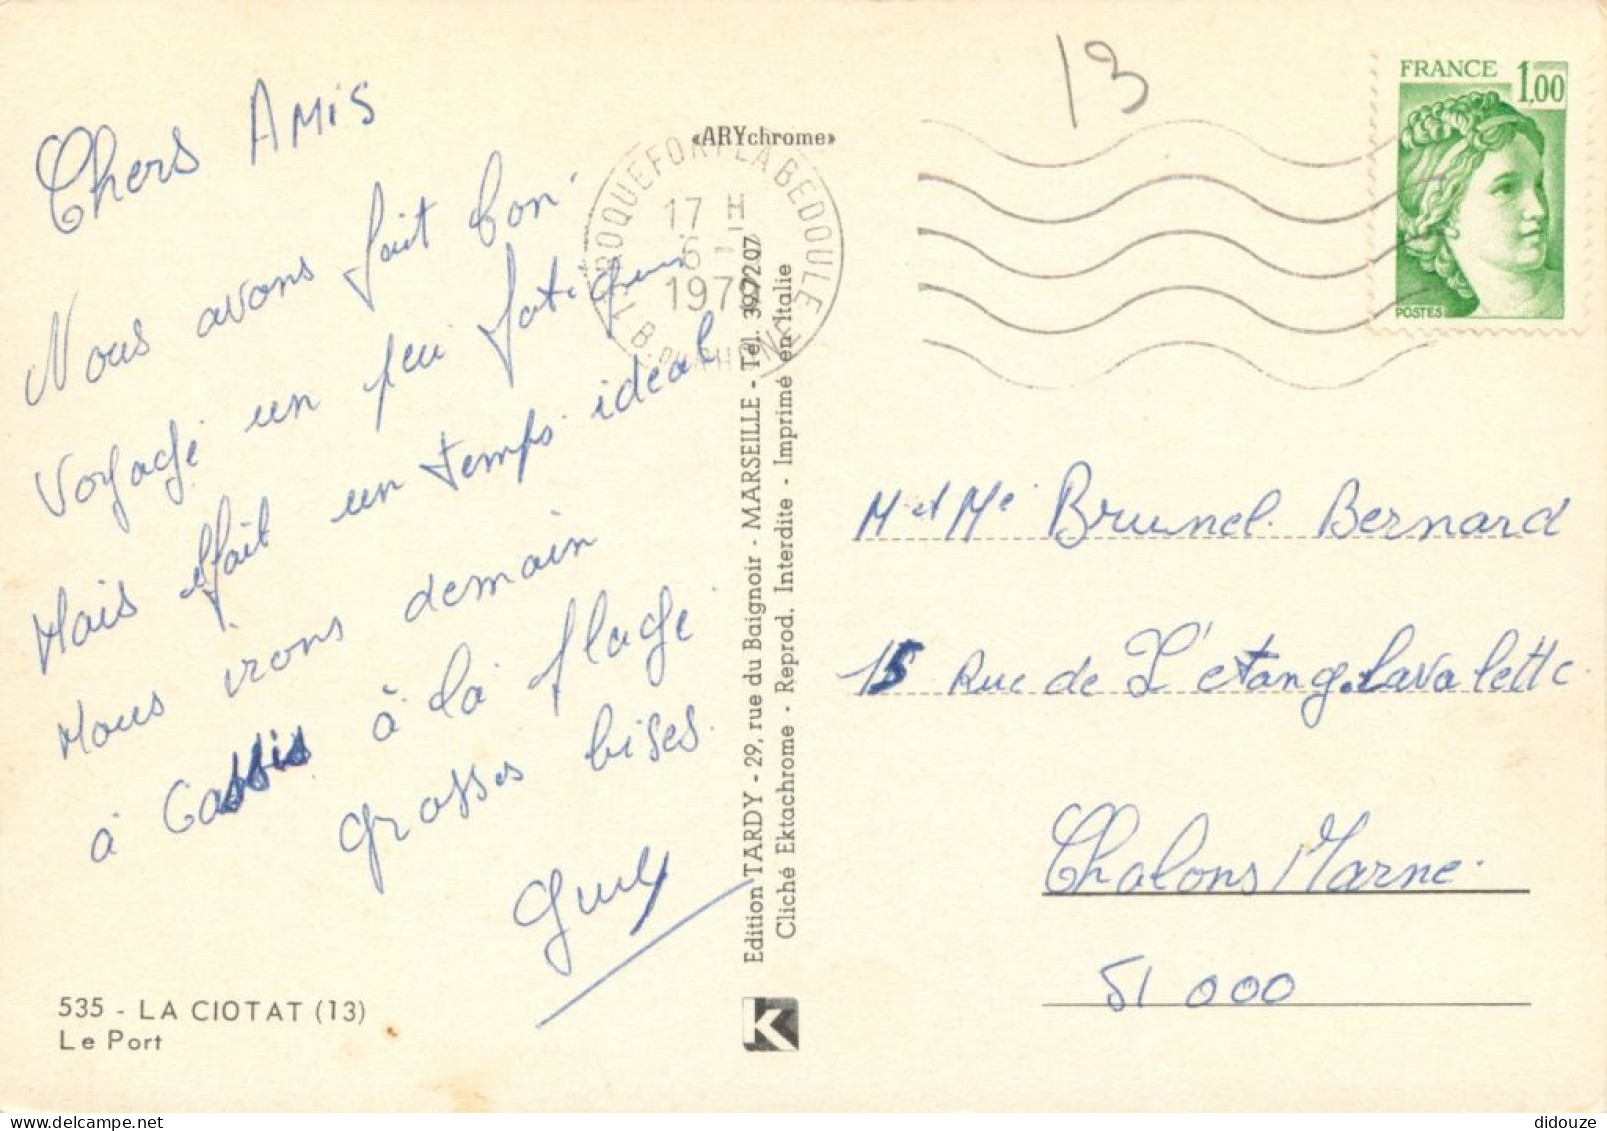 Chers AMIS
Nous avons fait bon
Voyage un peu fatiguer
Mais il fait un temps idéal
Nous irons demain
à Cassis à la plage
grosses bises.
Guy
535 - LA CIOTAT (13)
Le Port
«ARYchrome»
13 ROQUEFORT LA BEDOULE
17 H
6 -
B. DU RHONE
Edition TARDY - 29, rue du Baignoir - MARSEILLE - Tél. 397207
Cliché Ektachrome - Reprod. Interdite - Imprimé en Italie
K
13
FRANCE 1,00
POSTES
M et Me Brunel. Bernard
15 Rue de L'étang. Lavalette
Chalons/Marne.
51 000
didouze